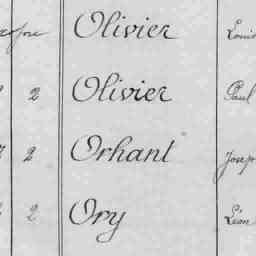 Olivier Louis
2 Olivier Paul
2 Orhant Josep
2 Ory Léon